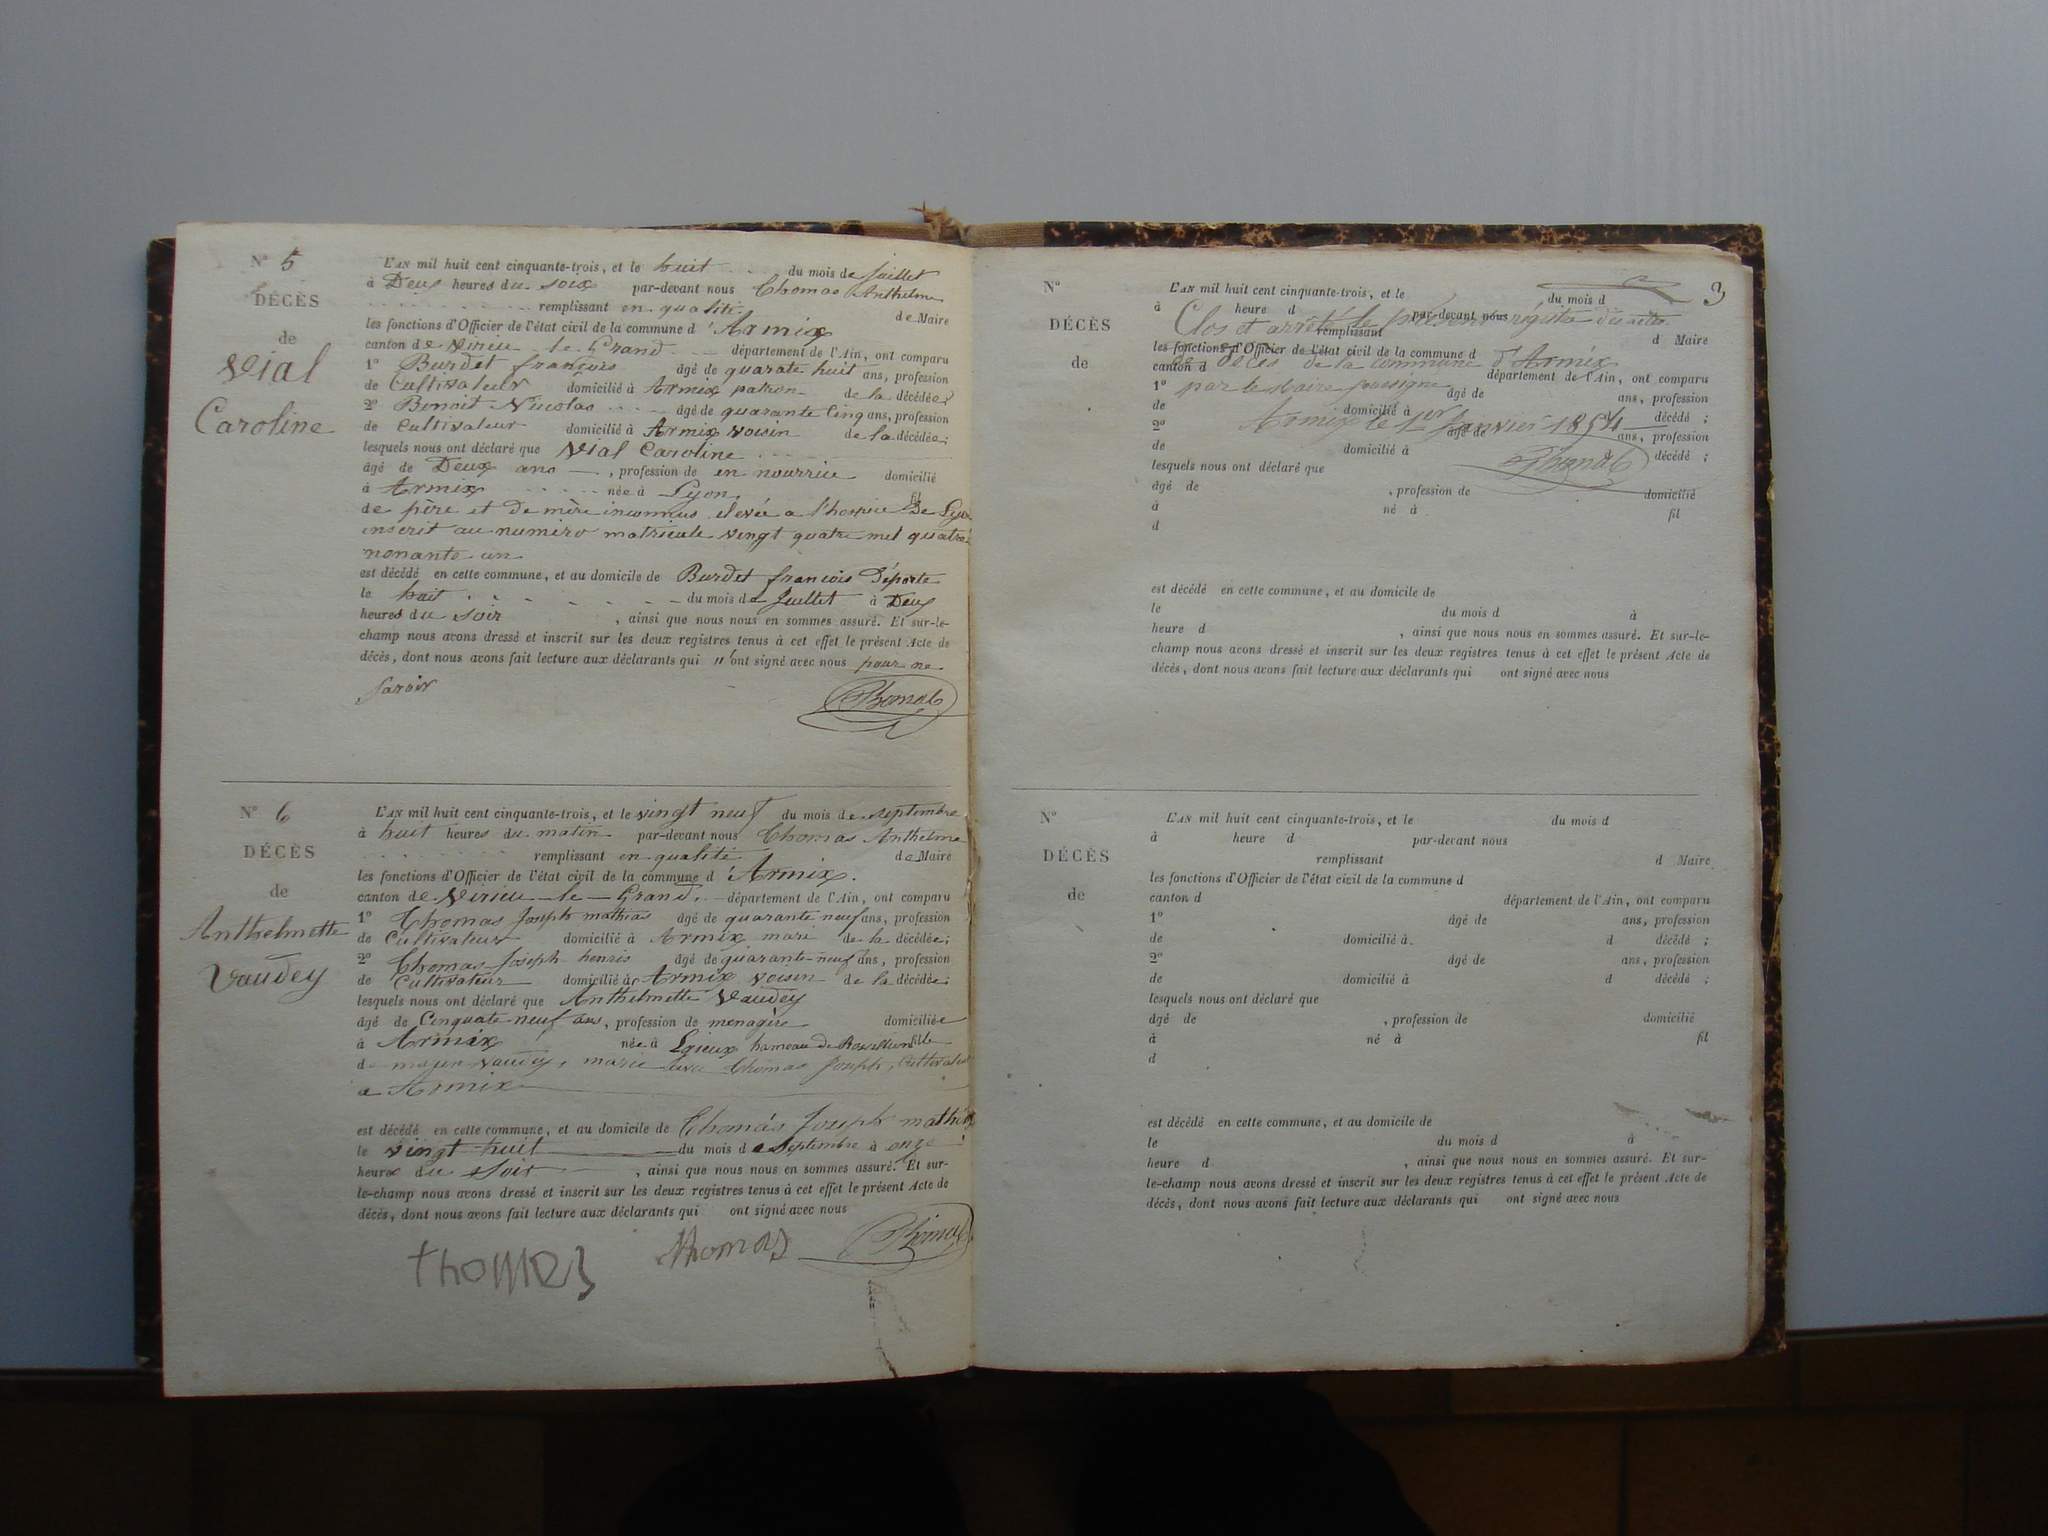 N° 5
DÉCÈS
de
Vial
Caroline
L'AN mil huit cent cinquante-trois, et le huit du mois de Juillet
à Deux heures du soir par-devant nous Thomas Anthelme
remplissant en qualité de Maire
les fonctions d'Officier de l'état civil de la commune d'Armix
canton de Virieu le Grand département de l'Ain, ont comparu
1° Burdet françois âgé de quarate huit ans, profession
de Cultivateur domicilié à Armix patron de la décédée;
2° Benoit Nicolas âgé de quarante Cinq ans, profession
de Cultivateur domicilié à Armix voisin de la décédée;
lesquels nous ont déclaré que Vial Caroline
âgé de Deux ans, profession de en nourrice domicilié
à Armix née à Lyon fil
de père et de mère inconnus elevée a l'hospice De Lyon
inscrit au numéro matricule vingt quatre mil quatre
nonante un
est décédé en cette commune, et au domicile de Burdet francois
le huit du mois de Juillet à Deux
heures du soir, ainsi que nous nous en sommes assuré. Et sur-le-
champ nous avons dressé et inscrit sur les deux registres tenus à cet effet le présent Acte de
décès, dont nous avons fait lecture aux déclarants qui n'ont signé avec nous pour ne
savoir
Thomas
N° 6
DÉCÈS
de
Anthelmette
Vaudey
L'AN mil huit cent cinquante-trois, et le vingt neuf du mois de septembre
à huit heures du matin par-devant nous Thomas Anthelme
remplissant en qualité de Maire
les fonctions d'Officier de l'état civil de la commune d'Armix.
canton de Virieu-le-Grand. département de l'Ain, ont comparu
1° Thomas Joseph mathias âgé de quarante neuf ans, profession
de Cultivateur domicilié à Armix mari de la décédée;
2° Thomas Joseph henris âgé de quarante-neuf ans, profession
de Cultivateur domicilié à Armix voisin de la décédée;
lesquels nous ont déclaré que Anthelmette Vaudey
âgé de Cinquate neuf ans, profession de menagère domiciliée
à Armix née à hameau de Rossillon fille
de Vaudey, Thomas Joseph, Cultivateur
a Armix
est décédé en cette commune, et au domicile de Thomas Joseph mathias
le vingt-huit du mois de Septembre à onze
heures du soir, ainsi que nous nous en sommes assuré. Et sur-
le-champ nous avons dressé et inscrit sur les deux registres tenus à cet effet le présent Acte de
décès, dont nous avons fait lecture aux déclarants qui ont signé avec nous
thomas Thomas Thomas
3
N°
DÉCÈS
de
L'AN mil huit cent cinquante-trois, et le du mois d
à heure d par-devant nous
Clos et arrêté le présent régistre des actes
remplissant d Maire
les fonctions d'Officier de l'état civil de la commune d
de décès de la commune d'Armix
canton d département de l'Ain, ont comparu
par le Maire soussigné
1° âgé de ans, profession
de domicilié à décédé ;
Armix le 1er Janvier 1854
2° âgé de ans, profession
de domicilié à décédé ;
Thomas
lesquels nous ont déclaré que
âgé de , profession de domicilié
à né à fil
d
est décédé en cette commune, et au domicile de
le du mois d à
heure d , ainsi que nous nous en sommes assuré. Et sur-le-
champ nous avons dressé et inscrit sur les deux registres tenus à cet effet le présent Acte de
décès, dont nous avons fait lecture aux déclarants qui ont signé avec nous
N°
DÉCÈS
de
L'AN mil huit cent cinquante-trois, et le du mois d
à heure d par-devant nous
remplissant d Maire
les fonctions d'Officier de l'état civil de la commune d
canton d département de l'Ain, ont comparu
1° âgé de ans, profession
de domicilié à d décédé ;
2° âgé de ans, profession
de domicilié à d décédé ;
lesquels nous ont déclaré que
âgé de , profession de domicilié
à né à fil
d
est décédé en cette commune, et au domicile de
le du mois d à
heure d , ainsi que nous nous en sommes assuré. Et sur-
le-champ nous avons dressé et inscrit sur les deux registres tenus à cet effet le présent Acte de
décès, dont nous avons fait lecture aux déclarants qui ont signé avec nous